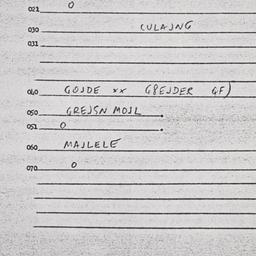 021 0
030 CULAJNG
031
040 GOJDE xx G8EJDER GF)
050 GREJSN MOJL .
051 0 .
060 MAJLELE
070 0